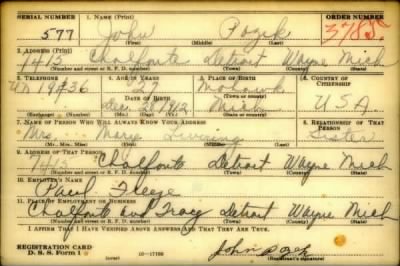 SERIAL NUMBER 1. NAME (Print) ORDER NUMBER
577 John Pozek 3785
(First) (Middle) (Last)
2. ADDRESS (Print)
7413 Chalfonte Detroit Wayne Mich
(Number and street or R. F. D. number) (Town) (County) (State)
3. TELEPHONE 4. AGE IN YEARS 5. PLACE OF BIRTH 6. COUNTRY OF CITIZENSHIP
Un 19436 27 Mohawk
DATE OF BIRTH
Dec 21 1912 Mich U S A
(Exchange) (Number) (Mo.) (Day) (Yr.) (State or country)
7. NAME OF PERSON WHO WILL ALWAYS KNOW YOUR ADDRESS 8. RELATIONSHIP OF THAT PERSON
Mrs. Mary Sister
(Mr., Mrs., Miss) (First) (Middle) (Last)
9. ADDRESS OF THAT PERSON
7413 Chalfonte Detroit Wayne Mich
(Number and street or R. F. D. number) (Town) (County) (State)
10. EMPLOYER'S NAME
Paul
11. PLACE OF EMPLOYMENT OR BUSINESS
Chalfonte and Tracy Detroit Wayne Mich
(Number and street or R. F. D. number) (Town) (County) (State)
I AFFIRM THAT I HAVE VERIFIED ABOVE ANSWERS AND THAT THEY ARE TRUE.
REGISTRATION CARD
D. S. S. Form 1 (over) 16—17105 John Pozek
(Registrant's signature)